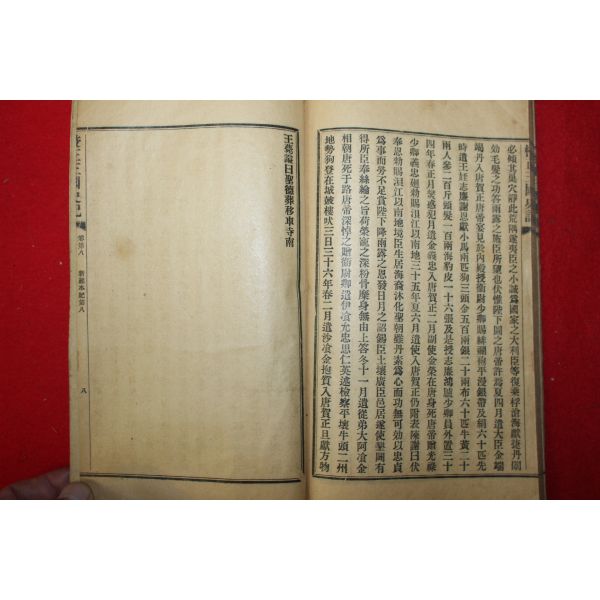 必傾其巢穴靜此荒隅遂夷臣之小誠爲國家之大利臣等復乘桴滄海獻捷丹闈
効毛髮之功答雨露之施臣所望也伏惟陛下圖之唐帝許焉夏四月遣大臣金端
竭丹入唐賀正唐帝宴見於內殿授衛尉少卿賜緋襴袍平漫銀帶及絹六十匹先
時遣王姪志廉謝恩獻小馬兩匹狗三頭金五百兩銀二十兩布六十匹牛黃二十
兩人參二百斤頭髮一百兩海豹皮一十六張及是授志廉鴻臚少卿員外置三十
四年春正月熒惑犯月遣金義忠入唐賀正二月副使金榮在唐身死唐帝贈光祿
少卿義忠廻勅賜浿江以南地三十五年夏六月遣使入唐賀正仍附表陳謝曰伏
奉恩勅賜浿江以南地境臣生居海裔沐化聖朝雖丹素爲心而功無可効以忠貞
爲事而勞不足賞陛下降雨露之恩發日月之詔錫臣土壤廣臣邑居遂使墾闢有
得所臣奉絲綸之旨荷榮寵之深粉骨糜身無由上答冬十一月遣從弟大阿飡金
相朝唐死于路唐帝深悼之贈衛尉卿遣伊飡允忠思仁英述檢察平壤牛頭二州
地勢狗登在城鼓樓吠三日三十六年春二月遣沙飡金抱質入唐賀正且獻方物
王薨諡曰聖德葬移車寺南
三國史記 卷第八 新羅本紀第八 八